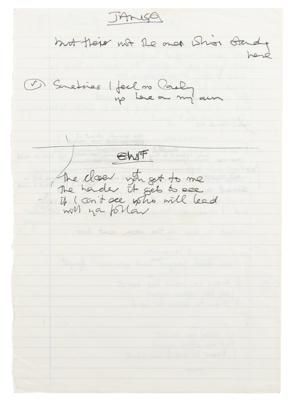 JANICE
but there not the ones who's standing
here
✓ Sometimes I feel so lonely
up here on my own
The closer you get to me
The harder it gets to see
If I can't see who will lead
will ya follow